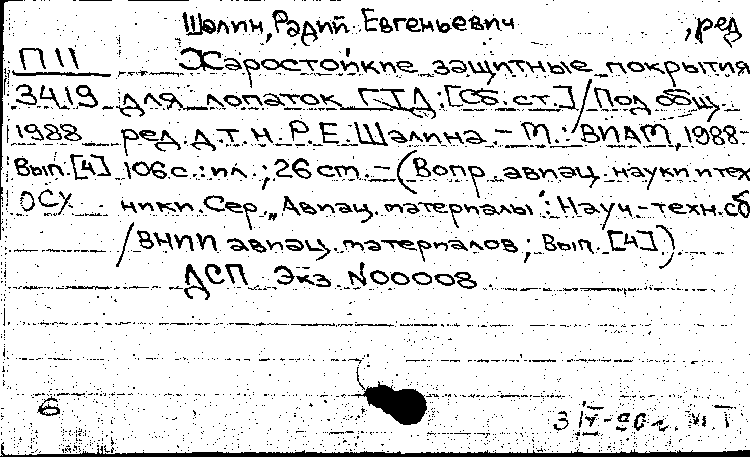 Шалин, Радий Евгеньевич , ред
П 11 Жаростойкие защитные покрытия
3419 для лопаток ГТД: [Сб. ст.] / Под общ.
1988 ред. д. т. н. Р. Е. Шалина. - М.: ВИАМ, 1988-
Вып. [4] 106 с.: ил.; 26 ст. - (Вопр. авиац. науки и тех
ОСХ ники. Сер. „Авиац. материалы": Науч.-техн. сб
/ ВНИИ авиац. материалов; Вып. [4])
ДСП Экз. №00008
6 3 IV-90 г.